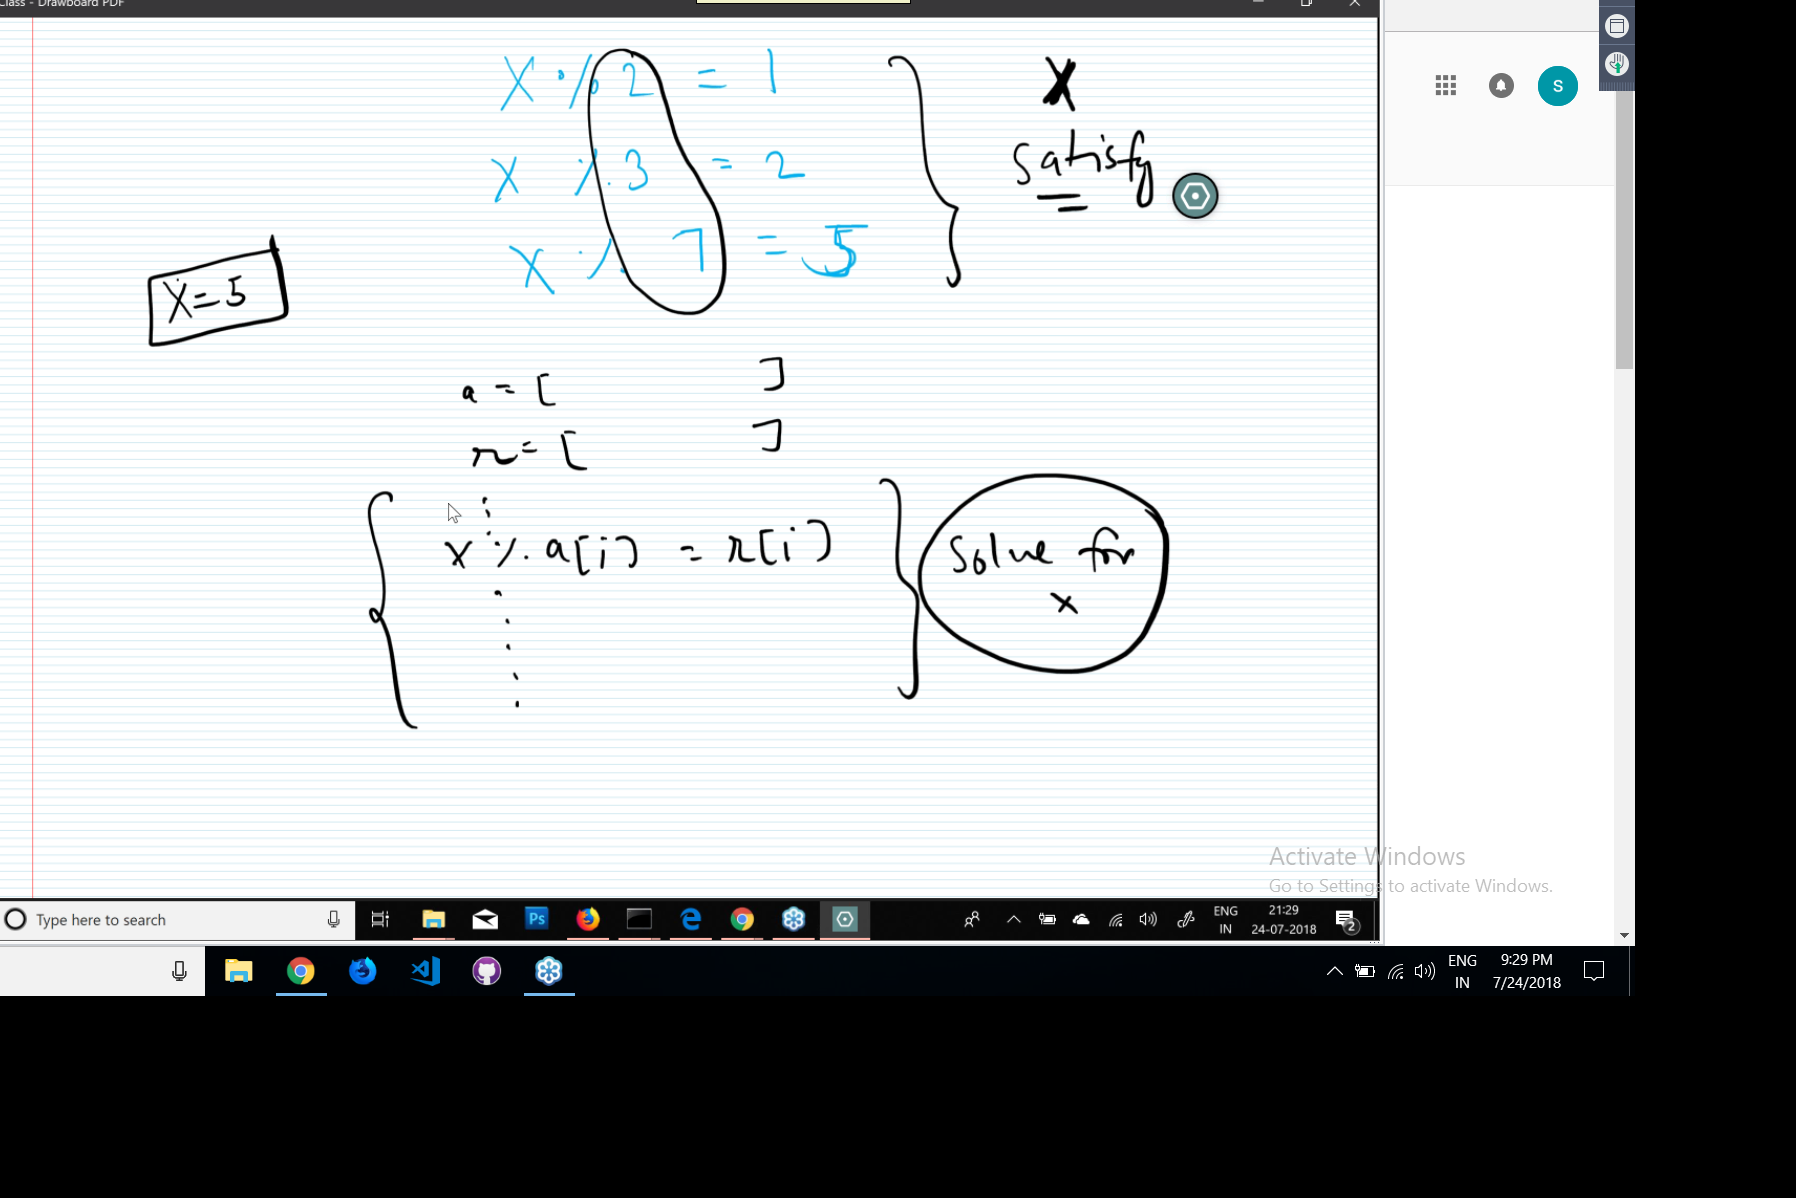 Class - Drawboard PDF
X % 2 = 1
X % 3 = 2
X % 7 = 5
X
satisfy
X = 5
a = [ ]
r = [ ]
x % a[i] = r[i]
Solve for
x
S
Activate Windows
Go to Settings to activate Windows.
Type here to search
Ps
ENG
IN
21:29
24-07-2018
2
ENG
IN
9:29 PM
7/24/2018